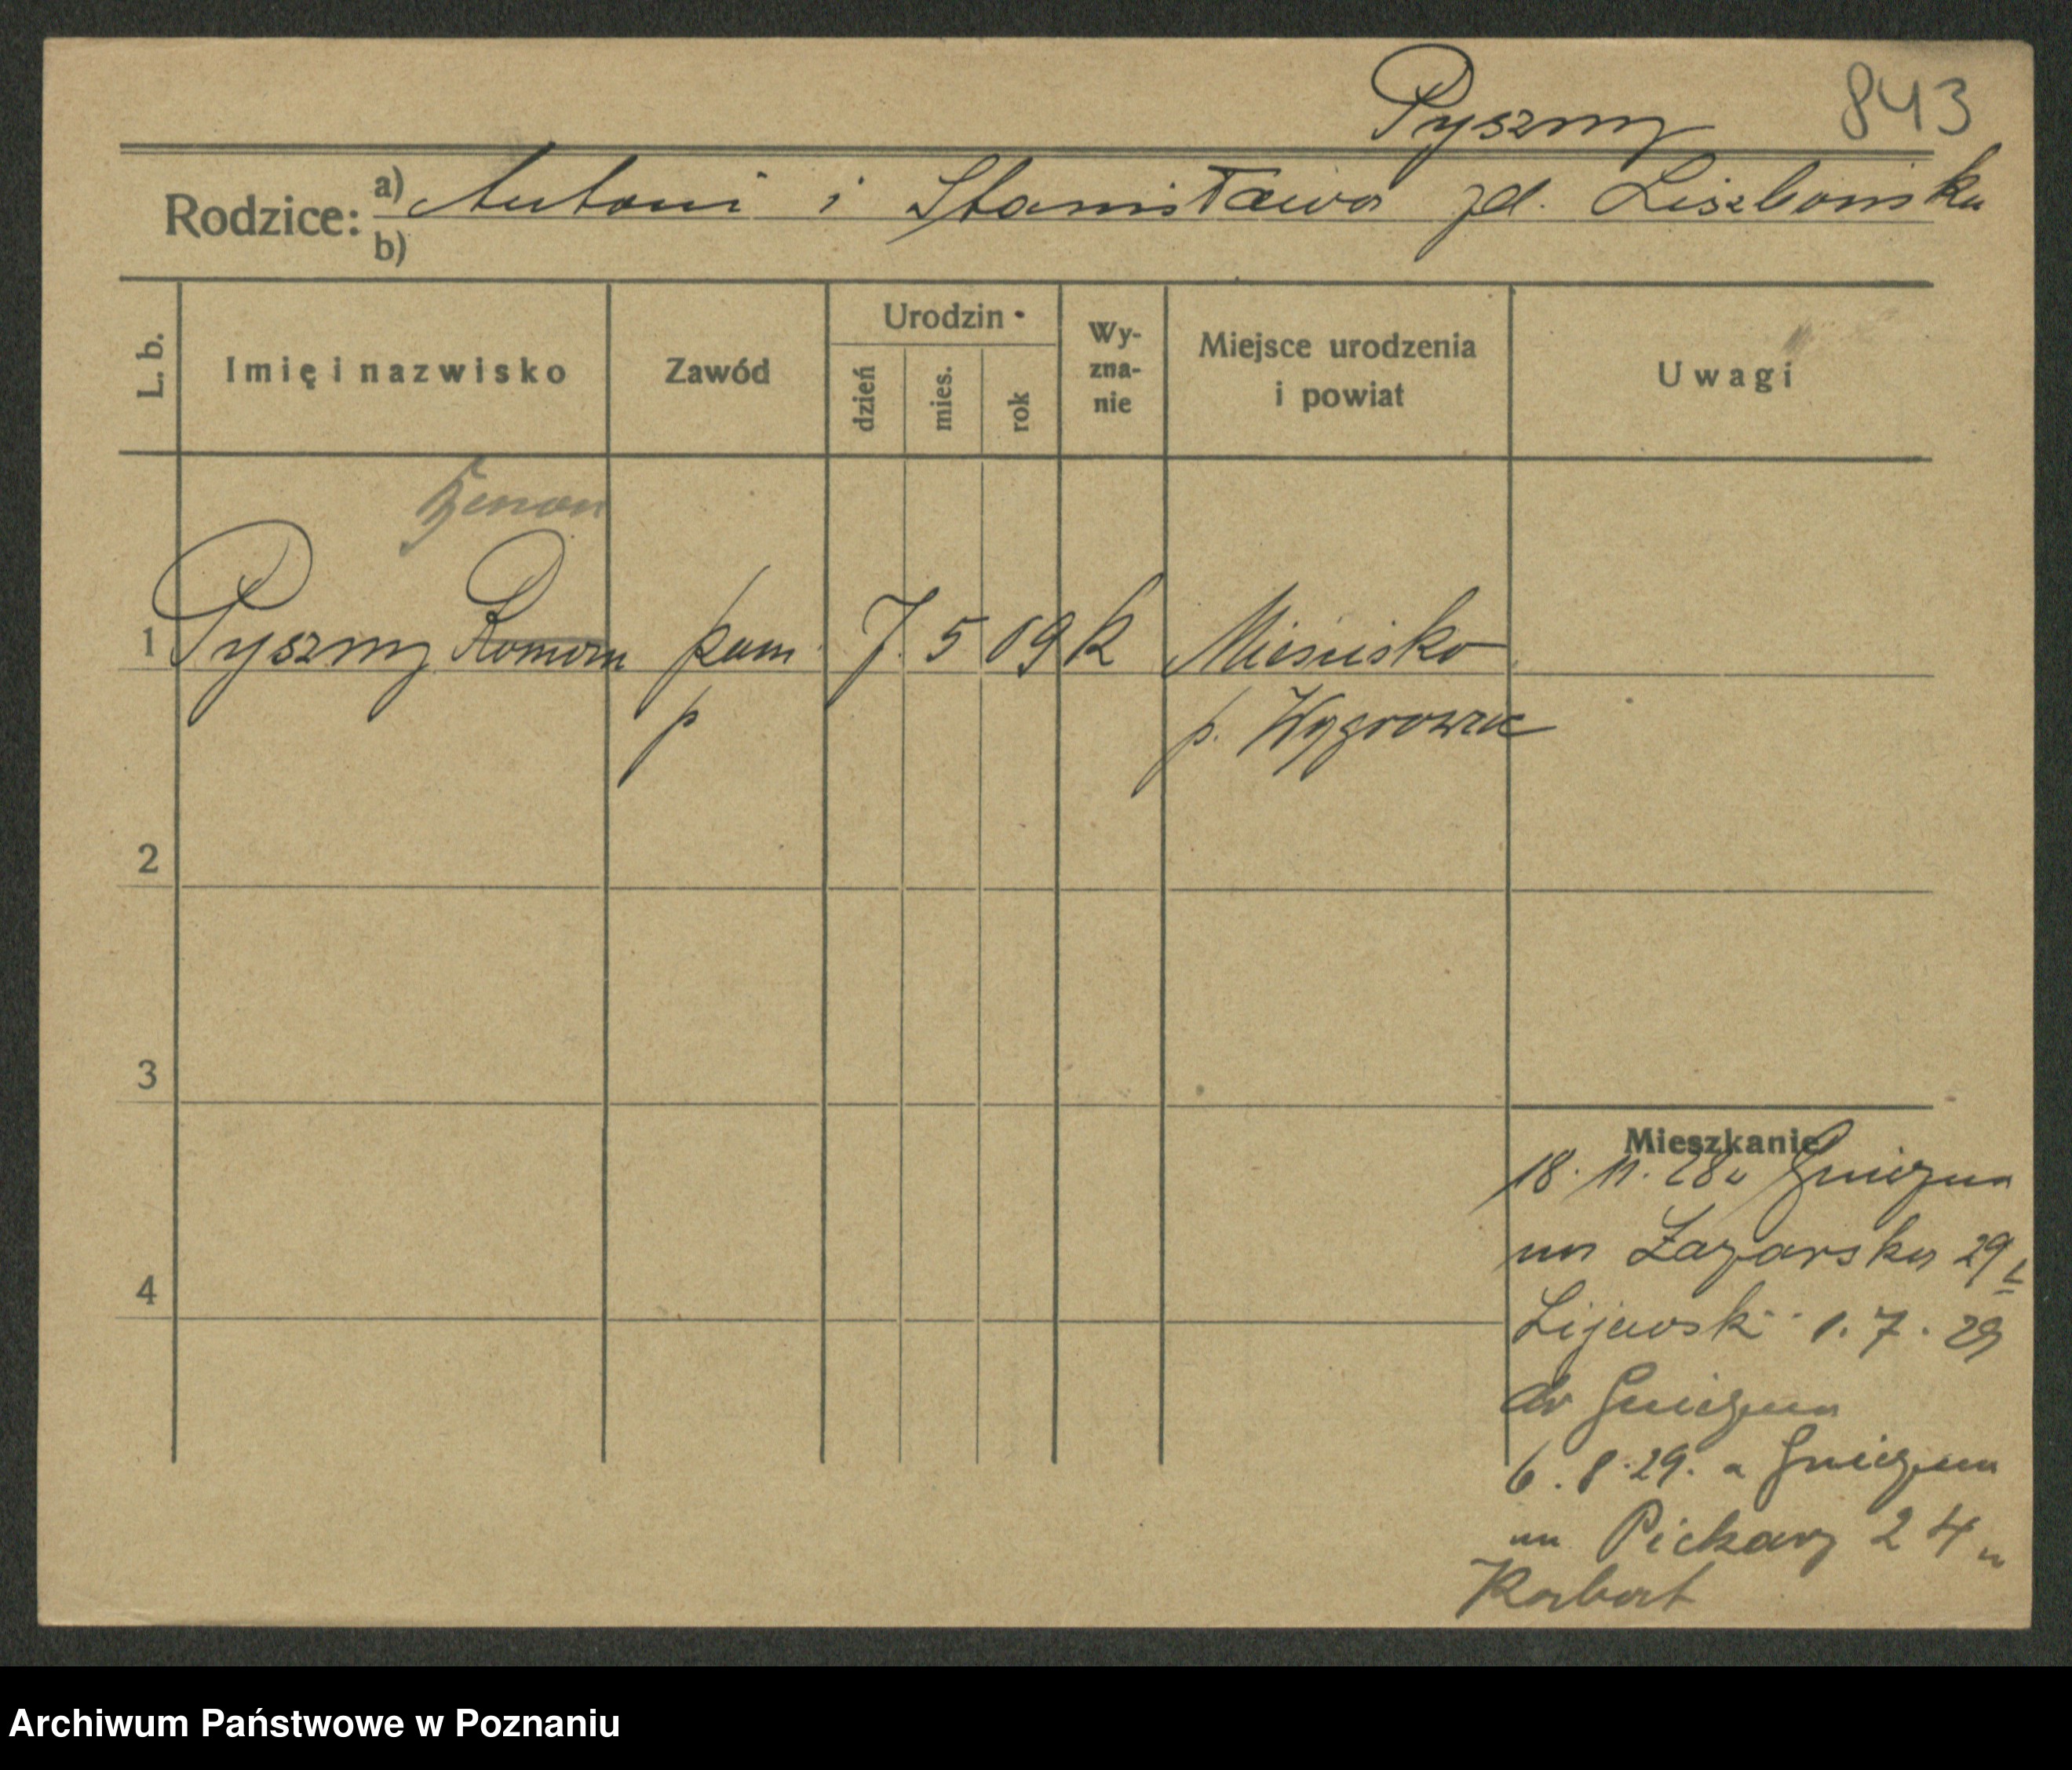 Pyszny 843
Rodzice: a) Antoni i Stanisława zd. Liszbońska
b)
L. b. Imię i nazwisko Zawód Urodzin Wy-zna-nie Miejsce urodzenia i powiat Uwagi
dzień mies. rok
Zenon
1 Pyszny Roman pom 7. 5 09 k Mieścisko
p p. Wągrowiec
2
3
Mieszkanie
18. 11. 28 Gniezna
na Łazarska 29
4
Lijewski 1. 7. 29
do Gniezna
6. 8. 29. Gniezna
na Piekary 24
Korbort
Archiwum Państwowe w Poznaniu